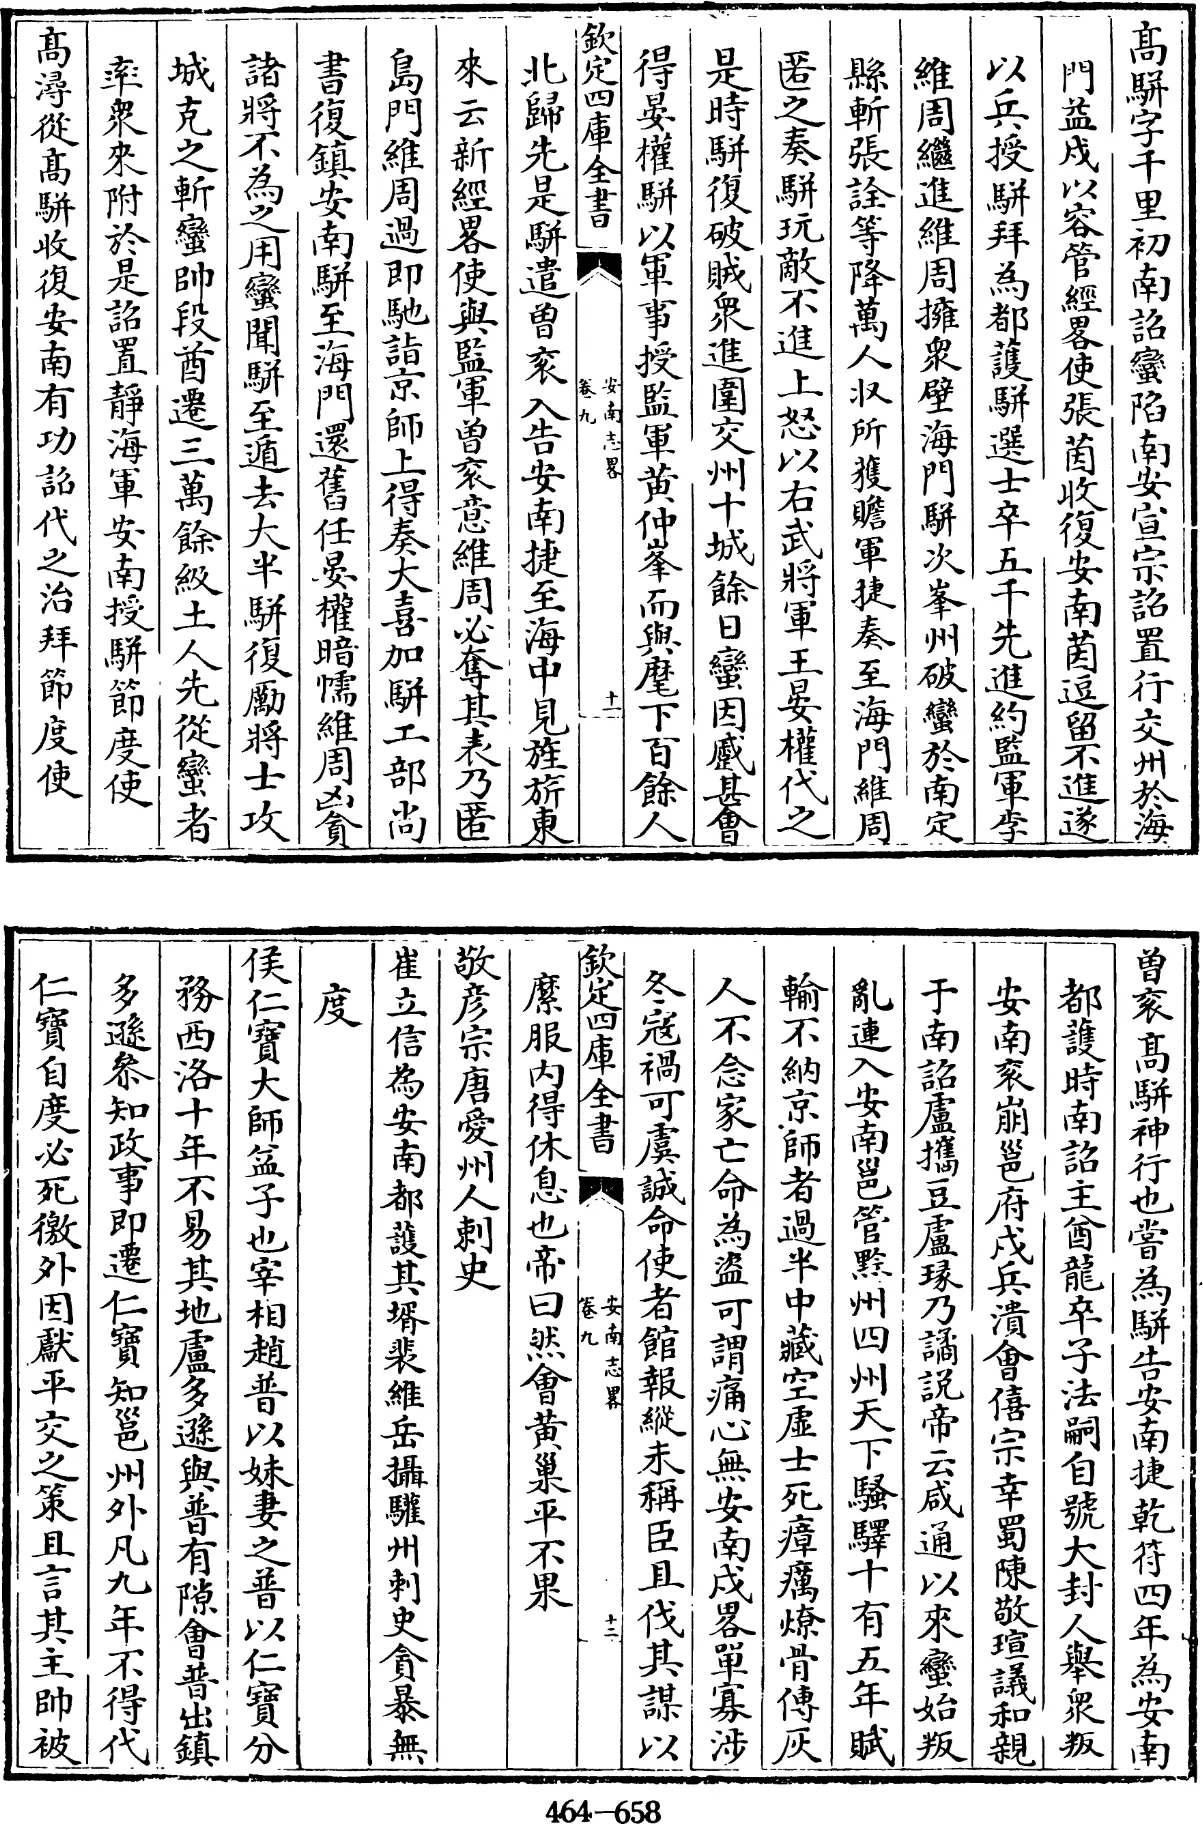 髙駢字千里初南詔蠻陷南安宣宗詔置行交州於海
門益戍以容管經畧使張茵收復安南茵逗留不進遂
以兵授駢拜為都護駢選士卒五千先進約監軍李
維周繼進維周擁衆壁海門駢次峯州破蠻於南定
縣斬張詮等降萬人収所獲贍軍捷奏至海門維周
匿之奏駢玩敵不進上怒以右武將軍王晏權代之
是時駢復破賊衆進圍交州十城餘日蠻因蹙甚會
得晏權駢以軍事授監軍黄仲峯而與麾下百餘人
欽定四庫全書
安南志畧
卷九
十一
北歸先是駢遣曽衮入告安南捷至海中見旌旂東
來云新經畧使與監軍曽衮意維周必奪其表乃匿
島門維周過即馳詣京師上得奏大喜加駢工部尚
書復鎮安南駢至海門還舊任晏權暗懦維周凶貪
諸將不為之用蠻聞駢至遁去大半駢復勵將士攻
城克之斬蠻帥段酋遷三萬餘級土人先從蠻者
率衆來附於是詔置靜海軍安南授駢節度使
髙潯從髙駢收復安南有功詔代之治拜節度使
曽衮髙駢神行也嘗為駢告安南捷乾符四年為安南
都護時南詔主酋龍卒子法嗣自號大封人舉衆叛
安南衮崩邕府戍兵潰會僖宗幸蜀陳敬瑄議和親
于南詔盧攜豆盧瑑乃譎説帝云咸通以來蠻始叛
亂連入安南邕管黔州四州天下騷驛十有五年賦
輸不納京師者過半中藏空虛士死瘴癘燎骨傳灰
人不念家亡命為盜可謂痛心無安南戍畧單寡涉
冬寇禍可虞誠命使者館報縱未稱臣且伐其謀以
欽定四庫全書
安南志畧
卷九
十二
縻服内得休息也帝曰然會黄巢平不果
敬彦宗唐愛州人刺史
崔立信為安南都護其壻裴維岳攝驩州刺史貪暴無
度
侯仁寶大師益子也宰相趙普以妹妻之普以仁寶分
務西洛十年不易其地盧多遜與普有隙會普出鎮
多遜叅知政事即遷仁寶知邕州外凡九年不得代
仁寶自度必死徼外因獻平交之策且言其主帥被
464-658